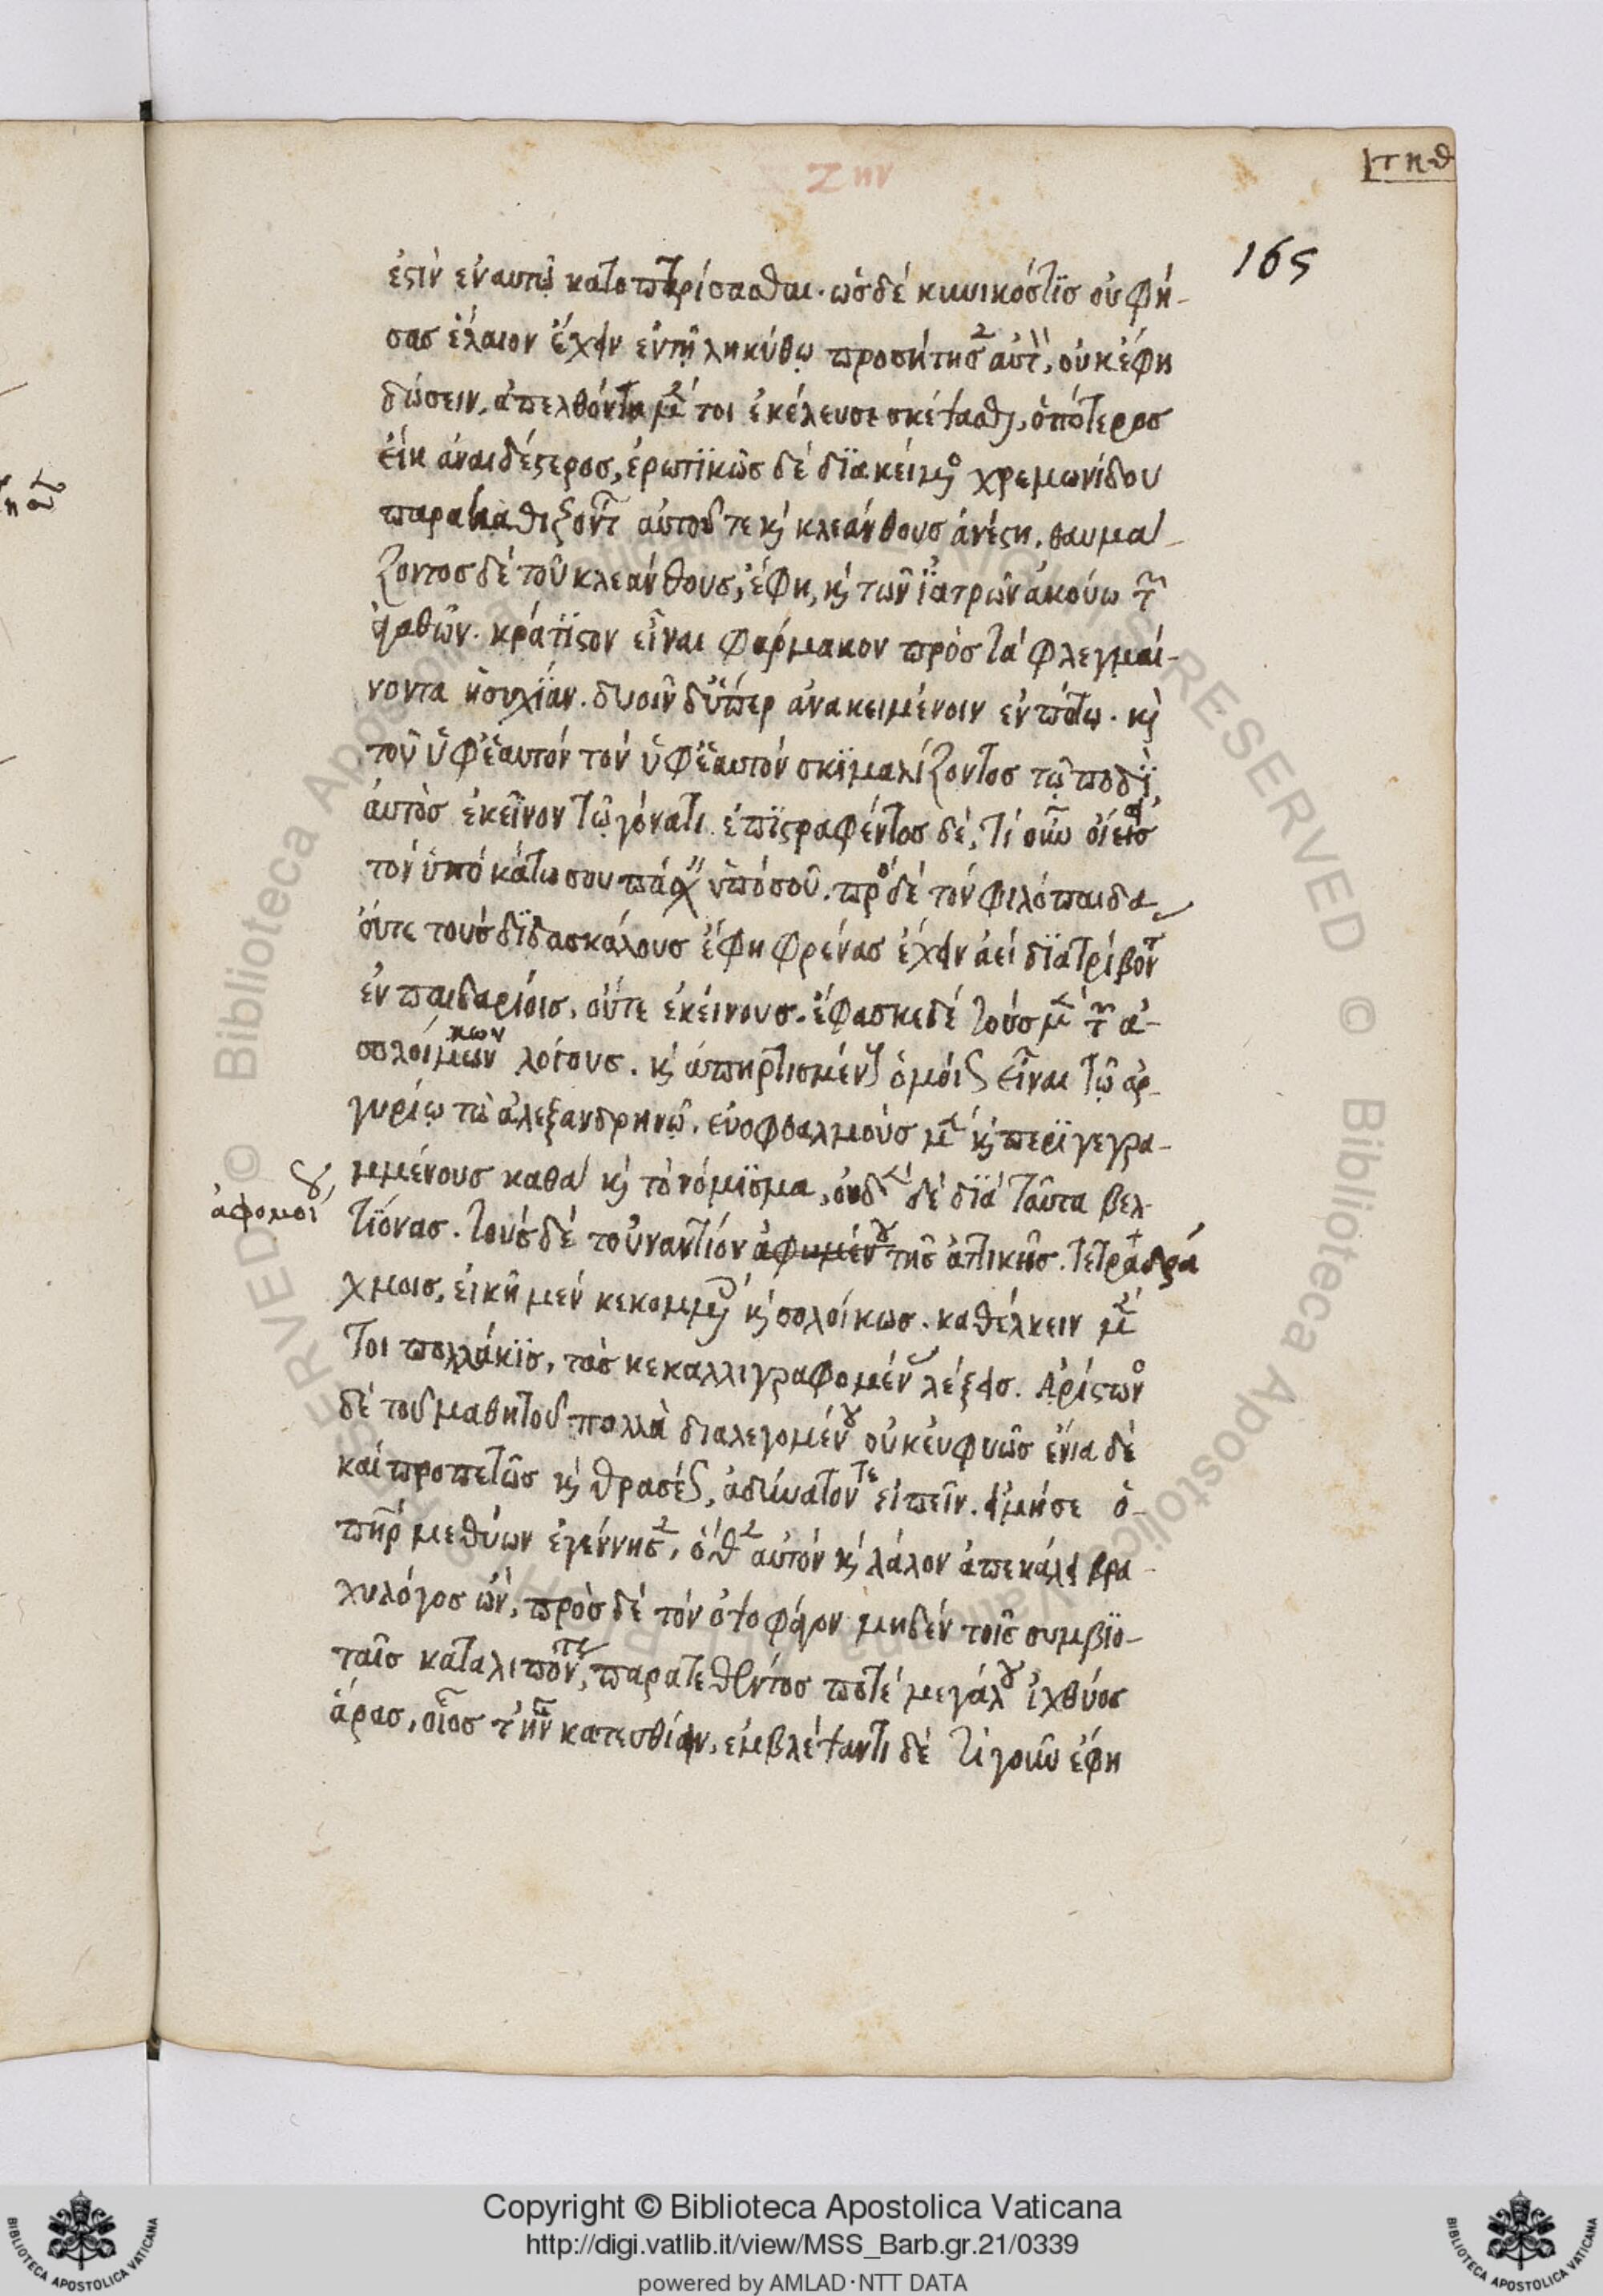 Ζην
τηθ
165
ἐστὶν ἐν αυτῶ κατοπτρίσασθαι. ὡς δέ κυνικός τϊς οὐ φή-
σας ἔλαιον ἔχειν ἐν τῇ ληκύθῳ προσήτησεν αὐτὸν, οὐκ ἔφη
δώσειν. ἀπελθόντα μέν τοι ἐκέλευσε σκέψασθαι, ὁπότερος
εἴη ἀναιδέστερος, ἐρωτϊκῶς δέ δϊακείμενος χρεμωνίδου
παρακαθιζοντ αὐτοῦ τε κὶ κλεάνθους ἀνέστη. θαυμά-
ζοντος δέ τοῦ κλεάνθους, ἔφη, κὶ τῶν ϊατρῶν ἀκούω τῶν
ἀγαθῶν. κράτϊστον εἶναι φάρμακον πρὸς τά φλεγμαί-
νοντα ἡσυχϊαν. δυοῖν δ' ὕπερ ἀνακειμένοιν ἐν πότῳ. κὶ
τοῦ ὑφ' ἑαυτόν τόν ὑφ' ἑαυτόν σκϊμαλίζοντος τῷ ποδϊ,
ἀυτὸς ἐκεῖνον τῷ γόνατι. ἐπϊστραφέντος δέ, τί οὖν οἴει
τόν ὑποκάτω σου πάσχειν ὑπό σοῦ. πρὸς δέ τόν φιλόπαιδα
ὄυτε τοὺς δϊδασκάλους ἔφη φρένας ἔχειν ἀεί δϊατρίβοντ
ἐν παιδαρίοις, οὔτε ἐκείνους. ἔφασκε δέ τούς μέν τῶν ἀ-
σολοίκων λόγους. κὶ ἀπηρτισμένους ὁμοίους εἶναι τῷ ἀρ-
γυρίῳ τῶ ἀλεξανδρηνῷ. ἐυοφθαλμούς μέν κὶ περϊγεγρα-
μμένους καθά κὶ τὸ νόμϊσμα, οὐδὲν δέ δϊά ταῦτα βελ-
ἀφομοι
τϊόνας. τούς δέ τοὐναντίον ἀφωμένου τῆς ἀττικῆς. τετραδρά
χμοις, εἰκῇ μέν κεκομμένοις κὶ σολοίκως. καθέλκειν μέν
τοι πολλάκϊς, τὰς κεκαλλιγραφομένας λέξεις. Ἀρίστωνος
δέ τοῦ μαθητοῦ πολλὰ διαλεγομένου οὐκ ἐυφυῶς ἔνια δέ
καί προπετῶς κὶ θρασέως, ἀδύνατόν τε εἰπεῖν. εἰ μή σε ὁ-
πατήρ μεθύων ἐγέννησεν, ὅθεν αὐτόν κὶ λάλον ἀπεκάλει βρα-
χυλόγος ὤν, πρὸς δέ τόν ὀψοφάγον μηδέν τοῖς συμβϊο-
ταῖς καταλιπόντα, παρατεθέντος ποτέ μεγάλου ἰχθύος
ἄρας, οἷος τ' ἦν κατεσθίειν, ἐμβλέψαντι δέ τί γοῦν ἔφη
Copyright © Biblioteca Apostolica Vaticana
http://digi.vatlib.it/view/MSS_Barb.gr.21/0339
powered by AMLAD·NTT DATA